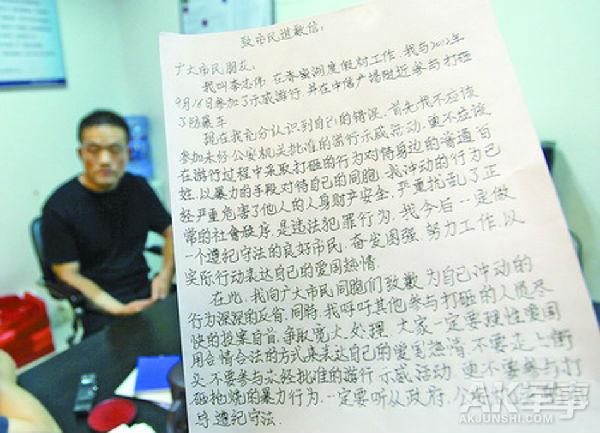 致市民道歉信:
广大市民朋友:
我叫李志伟,在香蜜湖度假村工作,我与2012年
9月16日参加了示威游行,并在中信广场附近参与打砸
了防暴车
现在我充分认识到自己的错误,首先我不应该
参加未经公安机关批准的游行示威活动,更不应该
在游行过程中采取打砸的行为对待身边的普通百
姓,以暴力的手段对待自己的同胞,我冲动的行为已
经严重危害了他人的人身财产安全,严重扰乱了正
常的社会秩序,是违法犯罪行为,我今后一定做
一个遵纪守法的良好市民,奋发图强,努力工作,以
实际行动表达自己的爱国热情.
在此,我向广大市民同胞们致歉,为自己冲动的
行为深深的反省,同时,我呼吁其他参与打砸的人员尽
快的投案自首,争取宽大处理,大家一定要理性爱国
用合情合法的方式来表达自己的爱国热情,不要走上街
头,不要参与未经批准的游行示威活动,更不要参与打
砸抢烧的暴力行为,一定要听从政府,公安
导,遵纪守法.
AK军事
AKJUNSHI.COM